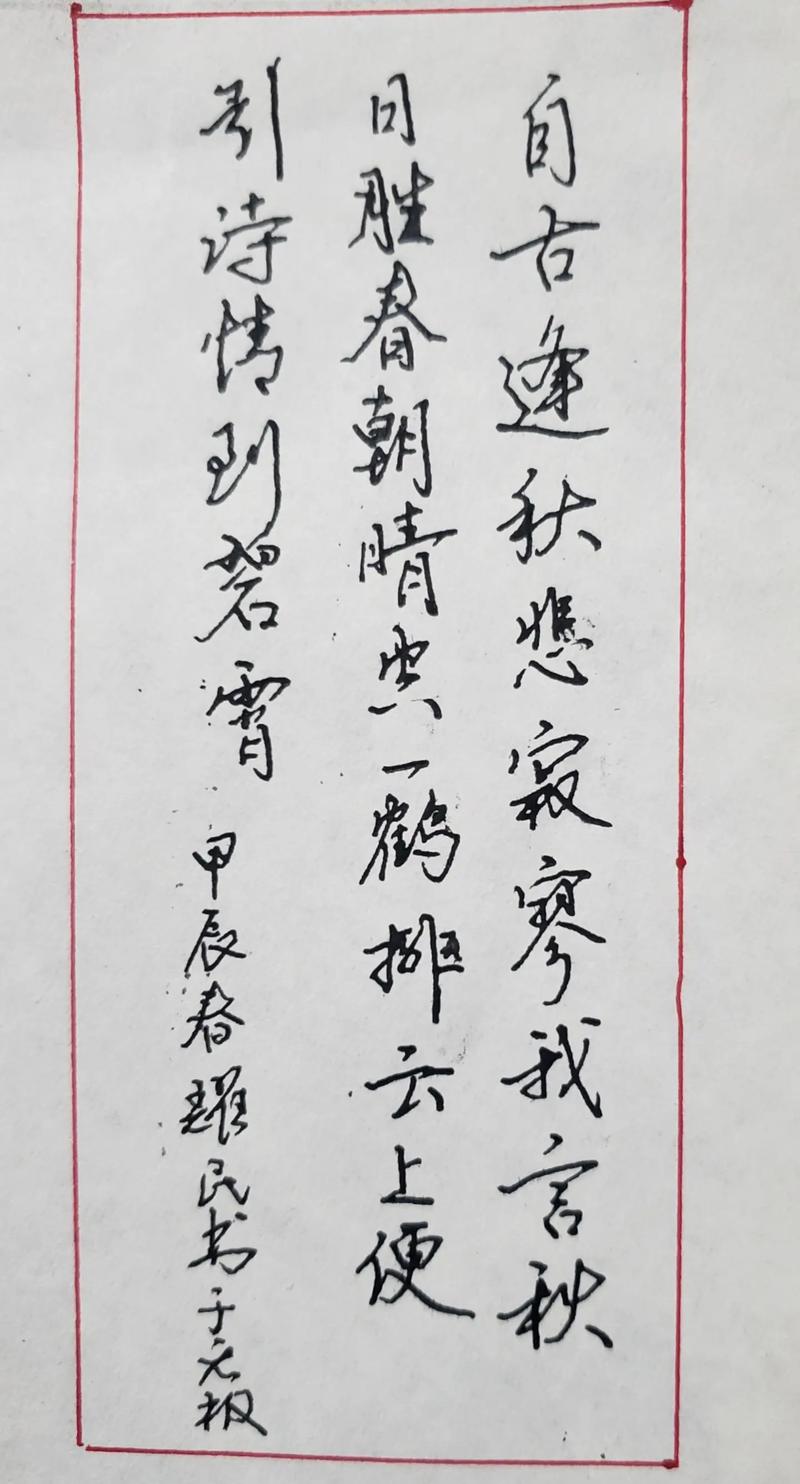 自古逢秋悲寂寥我言秋
日胜春朝晴空一鹤排云上便
引诗情到碧霄 甲辰春耀民书于元极